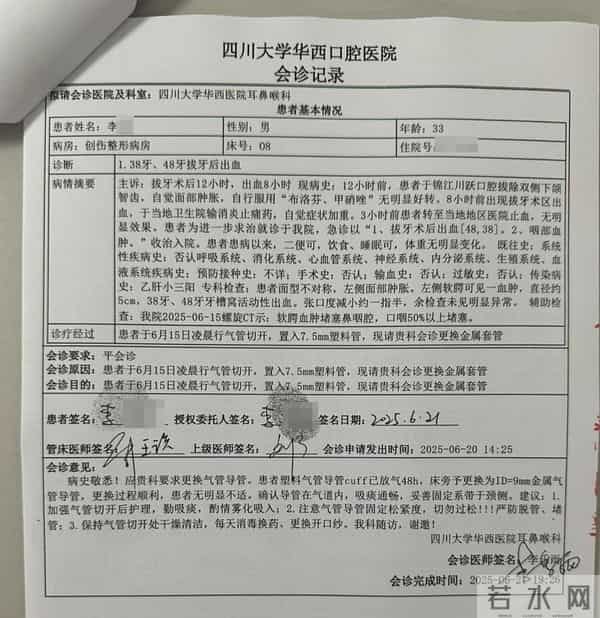 四川大学华西口腔医院
会诊记录
拟请会诊医院及科室：四川大学华西医院耳鼻喉科
患者基本情况
患者姓名：李 性别：男 年龄：33
病房：创伤整形病房 床号：08 住院号
诊断 1.38牙、48牙拔牙后出血
病情摘要 主诉：拔牙术后12小时，出血8小时 现病史：12小时前，患者于锦江川跃口腔拔除双侧下颌
智齿，自觉面部肿胀，自行服用“布洛芬、甲硝唑”无明显好转。8小时前出现拔牙术区出
血，于当地卫生院输消炎止痛药，自觉症状加重。3小时前患者转至当地地区医院止血，无明
显效果。患者为进一步求治就诊于我院，急诊以“1、拔牙术后出血[48,38]。2、咽部血
肿。”收治入院。患者患病以来，二便可，饮食、睡眠可，体重无明显变化。 既往史：系统
性疾病史：否认呼吸系统、消化系统、心血管系统、神经系统、内分泌系统、生殖系统、血
液系统疾病史； 预防接种史：不详；手术史：否认；输血史：否认；过敏史：否认；传染病
史：乙肝小三阳 专科检查：患者面型不对称，左侧面部肿胀。左侧软腭可见一血肿，直径约
5cm，38牙、48牙牙槽窝活动性出血。张口度减小约一指半，余检查未见明显异常。 辅助检
查：我院2025-06-15螺旋CT示：软腭血肿堵塞鼻咽腔，口咽50%以上堵塞。
诊疗经过 患者于6月15日凌晨行气管切开，置入7.5mm塑料管，现请贵科会诊更换金属套管
会诊要求：平会诊
会诊原因：患者于6月15日凌晨行气管切开，置入7.5mm塑料管，现请贵科会诊更换金属套管
会诊目的：患者于6月15日凌晨行气管切开，置入7.5mm塑料管，现请贵科会诊更换金属套管
患者签名：李 授权委托人签名：李 签名日期：2025.6.21
管床医师签名： 上级医师签名： 会诊申请发出时间：2025-06-20 14:25
会诊意见：
病史敬悉！应贵科要求更换气管导管。患者塑料气管导管cuff已放气48h，床旁予更换为ID=9mm金属气
管导管，更换过程顺利，患者无明显不适。确认导管在气道内，吸痰通畅，妥善固定系带于颈侧。建议：1.
加强气管切开后护理，勤吸痰，酌情雾化吸入；2.注意气管导管固定松紧度，切勿过松!!!严防脱管、堵
管；3.保持气管切开处干燥清洁，每天消毒换药、更换开口纱。我科随访，谢邀！
四川大学华西医院耳鼻喉科
会诊医师签名：
会诊完成时间：2025-06-21 19:26
若水网